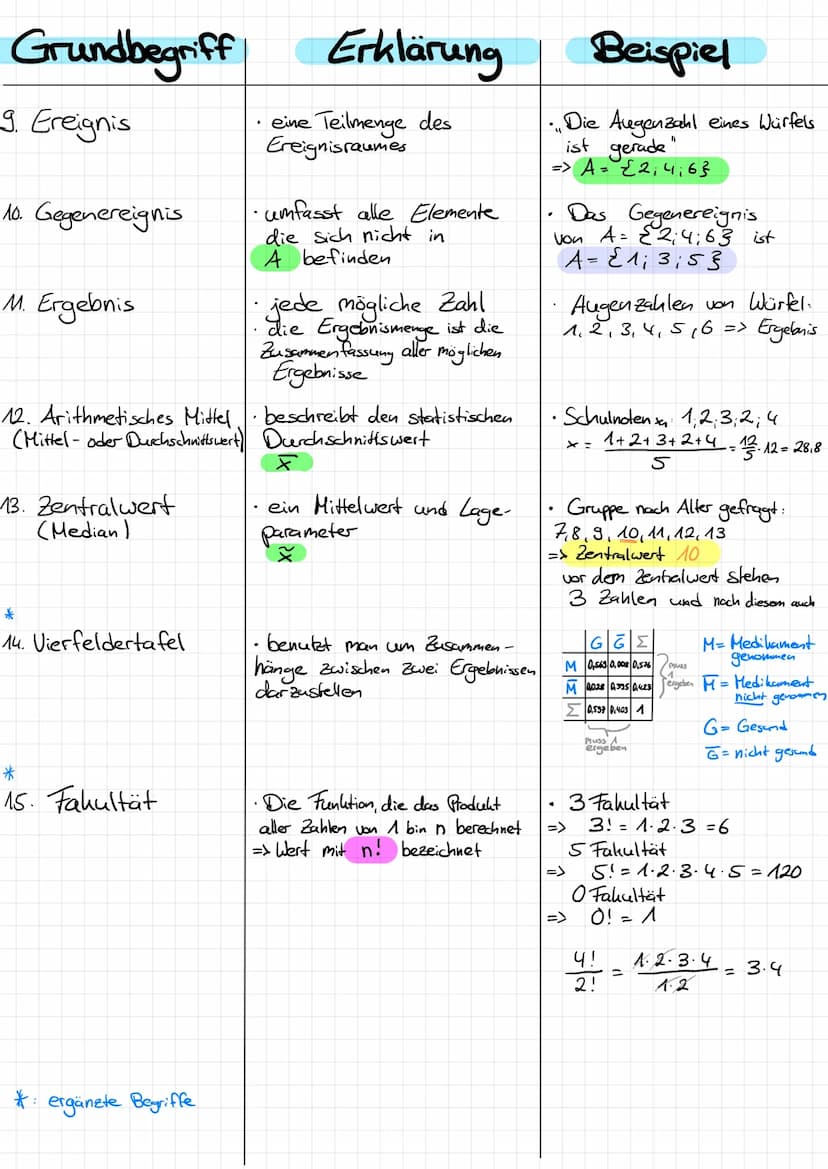 Grundbegriff Erklärung Beispiel
9. Ereignis
· eine Teilmenge des
Ereignisraumes
· „Die Augenzahl eines Würfels
ist gerade"
=> A = {2;4;6}
10. Gegenereignis
· umfasst alle Elemente
die sich nicht in
A befinden
· Das Gegenereignis
von A = {2;4;6} ist
A = {1;3;5}
11. Ergebnis
· jede mögliche Zahl
· die Ergebnismenge ist die
Zusammenfassung aller möglichen
Ergebnisse
· Augenzahlen von Würfel:
1, 2, 3, 4, 5, 6 => Ergebnis
12. Arithmetisches Mittel
(Mittel- oder Durchschnittswert)
· beschreibt den statistischen
Durchschnittswert
x̅
· Schulnoten 1,2,3,2,4
x = 1+2+3+2+4 / 5 = 12/5 · 12 = 28,8
13. Zentralwert
(Median)
· ein Mittelwert und Lage-
parameter
x̃
· Gruppe nach Alter gefragt:
7, 8, 9, 10, 11, 12, 13
=> Zentralwert 10
vor dem Zentralwert stehen
3 Zahlen und nach diesem auch
*
14. Vierfeldertafel
· benutzt man um Zusammen-
hänge zwischen zwei Ergebnissen
darzustellen
G G̅ Σ
M 0,563 0,008 0,576
M̅ 0,028 0,395 0,423
Σ 0,597 0,403 1
muss
1
ergeben
muss 1
ergeben
M = Medikament
genommen
M̅ = Medikament
nicht genommen
G = Gesund
G̅ = nicht gesund
*
15. Fakultät
· Die Funktion, die das Produkt
aller Zahlen von 1 bin n berechnet
=> Wert mit n! bezeichnet
· 3 Fakultät
=> 3! = 1·2·3 = 6
5 Fakultät
=> 5! = 1·2·3·4·5 = 120
0 Fakultät
=> 0! = 1
4!/2! = 1·2·3·4 / 1·2 = 3·4
*: ergänzte Begriffe